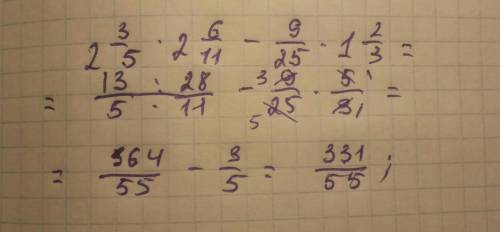 2 3/5 · 2 6/11 - 9/25 · 1 2/3 =
= 13/5 · 28/11 - 9/25 · 5/3 =
= 364/55 - 3/5 = 331/55;